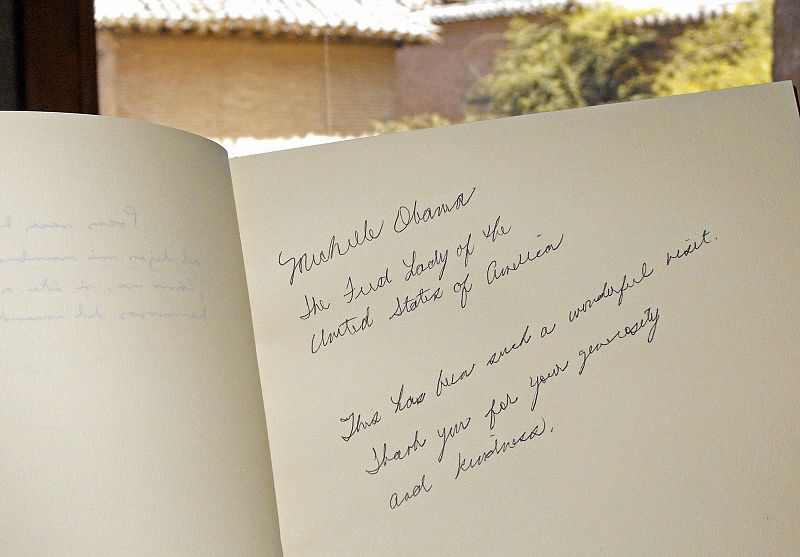 Michelle Obama
The First Lady of the
United States of America
This has been such a wonderful visit.
Thank you for your generosity
and kindness.